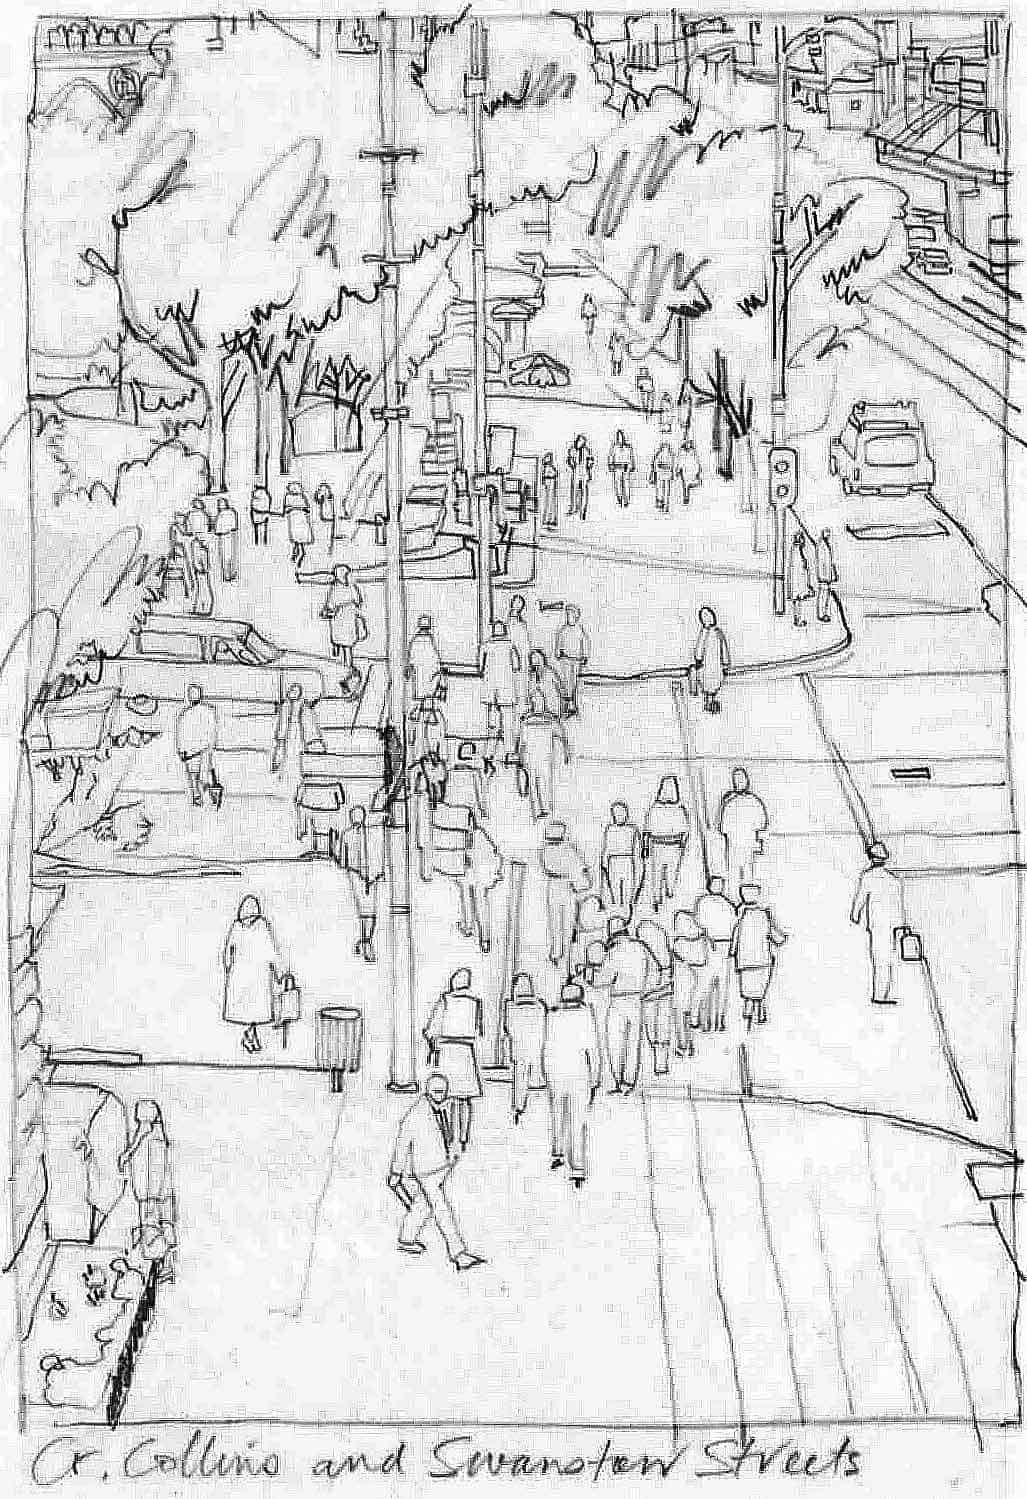 Cr. Collins and Swanston Streets